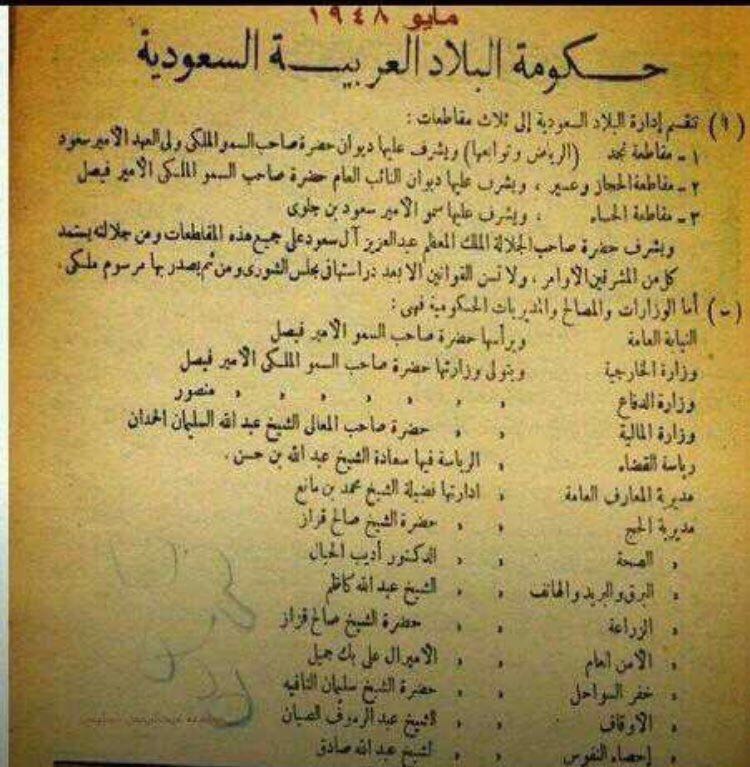 مايو ١٩٤٨
حكومة البلاد العربية السعودية
(١) تنقسم إدارة البلاد السعودية إلى ثلاث مقاطعات :
١ - مقاطعة نجد (الرياض وتوابعها) ويشرف عليها ديوان حضرة صاحب السمو الملكى ولى العهد الأمير سعود
٢ - مقاطعة الحجاز وعسير ، ويشرف عليها ديوان النائب العام حضرة صاحب السمو الملكى الأمير فيصل
٣ - مقاطعة الحساء ، ويشرف عليها سمو الأمير سعود بن جلوى
ويشرف حضرة صاحب الجلالة الملك المعظم عبد العزيز آل سعود على جميع هذه المقاطعات ومن جلالته يستمد
كل من المشرفين الأوامر ، ولا تسن القوانين الا بعد دراستها فى مجلس الشورى ومن ثم يصدر بها مرسوم ملكى .
(ب) أما الوزارات والمصالح والمديريات الحكومية فهى :
النيابة العامة ويرأسها حضرة صاحب السمو الأمير فيصل
وزارة الخارجية ويتولى وزارتها حضرة صاحب السمو الملكى الأمير فيصل
وزارة الدفاع » » » » » » » منصور
وزارة المالية » » حضرة صاحب المعالى الشيخ عبد الله السليمان الحمدان
رياسة القضاء » الرياسة فيها سعادة الشيخ عبد الله بن حسن .
مديرية المعارف العامة » ادارتها فضيلة الشيخ محمد بن مانع
مديرية الحج » » حضرة الشيخ صالح قزاز
» الصحة » » الدكتور أديب الحبال
» البرق والبريد والهاتف » » الشيخ عبد الله كاظم
» الزراعة » » حضرة الشيخ صالح قزاز
» الأمن العام » » الاميرال على بك جميل
» خفر السواحل » » حضرة الشيخ سليمان النافيه
» الأوقاف » » الشيخ عبد الرءوف الصبان
» إحصاء النفوس » » الشيخ عبد الله صادق